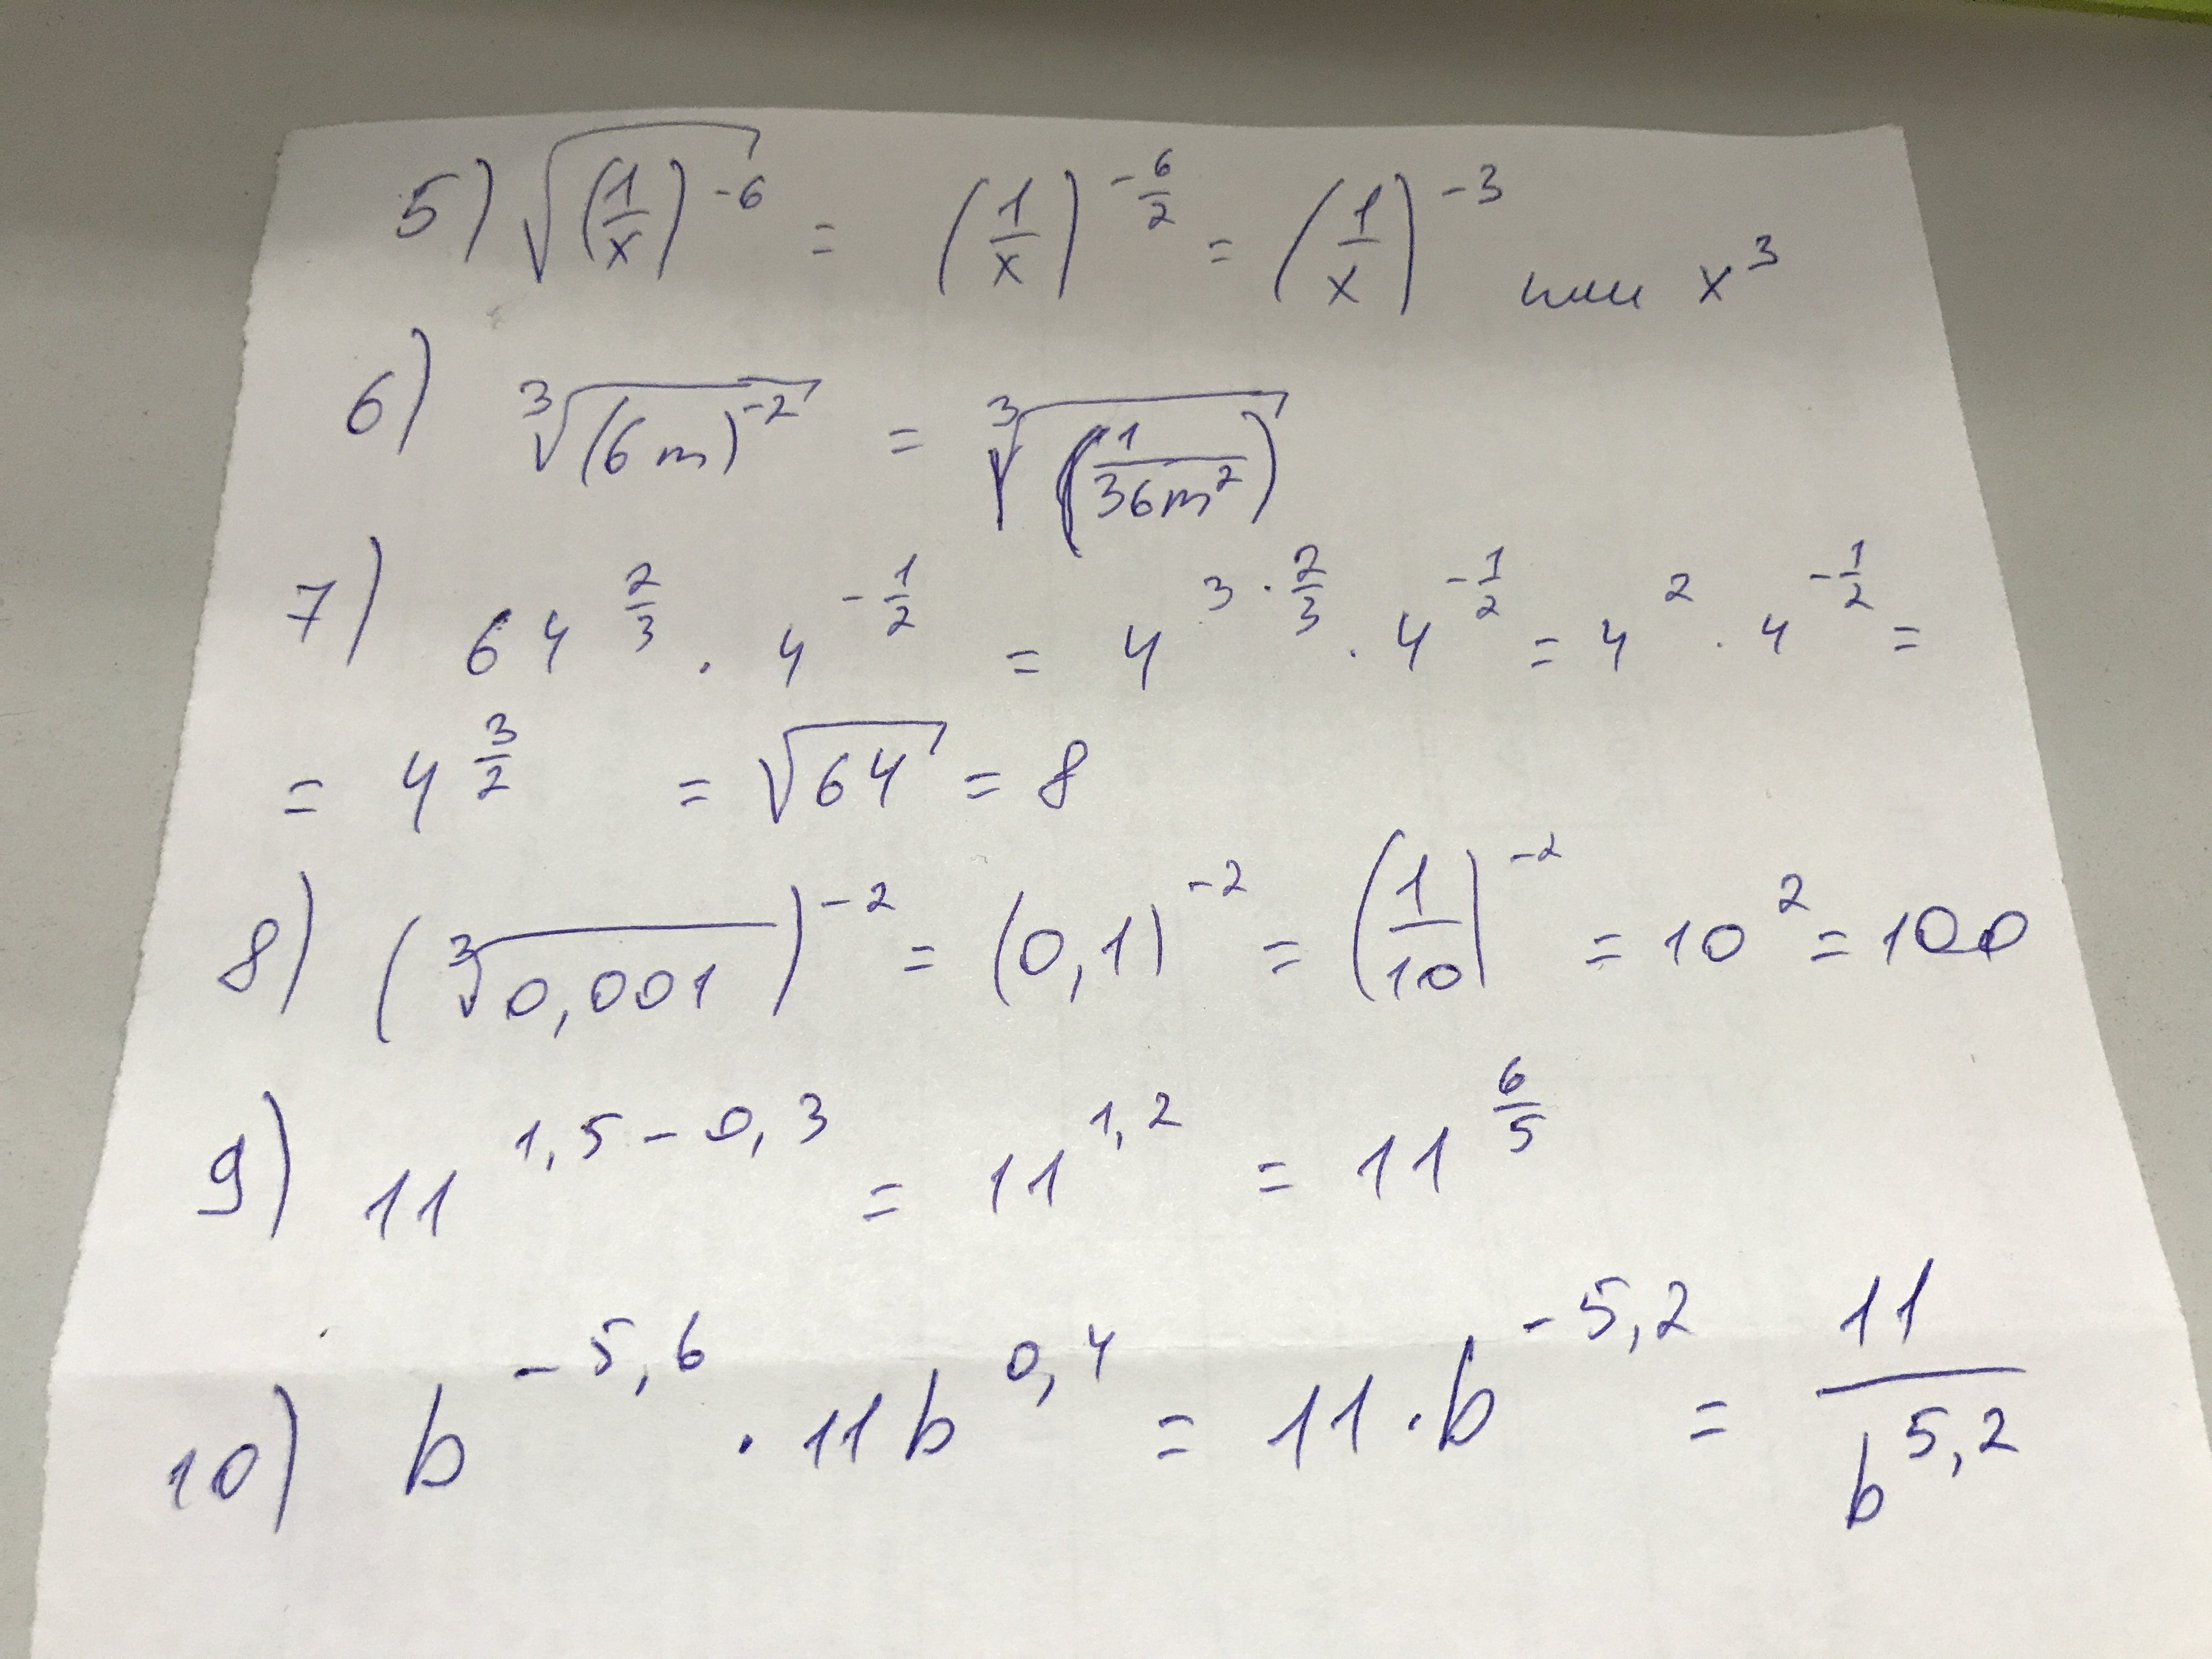 5) √((1/x)^-6) = (1/x)^(-6/2) = (1/x)^-3 или x^3
6) ∛((6m)^-2) = ∛((1/(36m^2)))
7) 64^(2/3) · 4^(-1/2) = 4^(3·2/3) · 4^(-1/2) = 4^2 · 4^(-1/2) =
= 4^(3/2) = √64 = 8
8) (∛0,001)^-2 = (0,1)^-2 = (1/10)^-2 = 10^2 = 100
9) 11^(1,5-0,3) = 11^(1,2) = 11^(6/5)
10) b^(-5,6) · 11b^(0,4) = 11·b^(-5,2) = 11/b^(5,2)